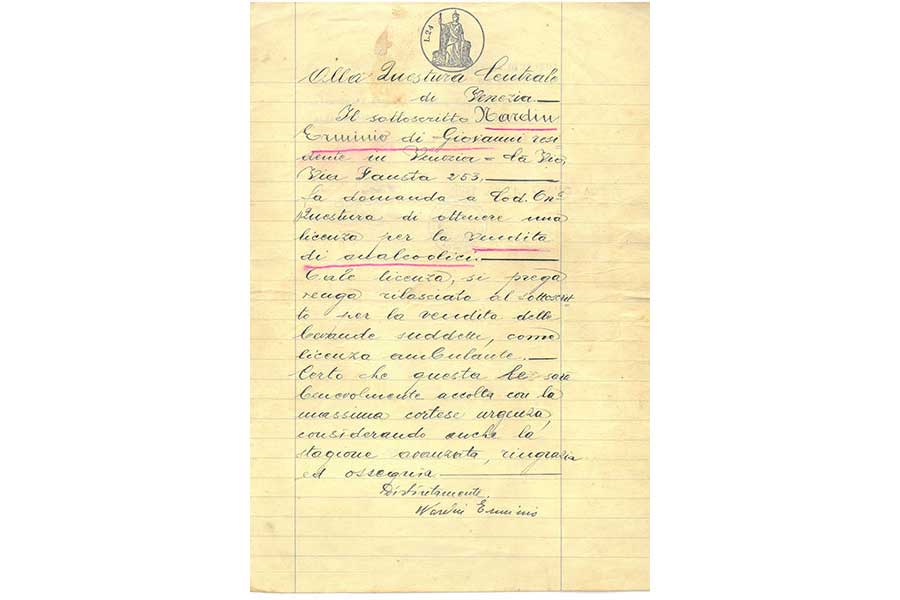 L.24
Alla Questura Centrale
di Venezia
Il sottoscritto Nardin
Erminio di Giovanni resi
dente in Venezia - La Vio,
Via Fausta 253.
fa domanda a Cod. On.
Questura di ottenere una
licenza per la vendita
di analcoolici.
Tale licenza, si prega
venga rilasciata al sottoscrit
to per la vendita delle
bevande suddette, come
licenza ambulante.
Certo che questa sarà
benevolmente accolta con la
massima cortese urgenza,
considerando anche la
stagione avanzata, ringrazia
ed ossequia
Distintamente.
Nardin Erminio